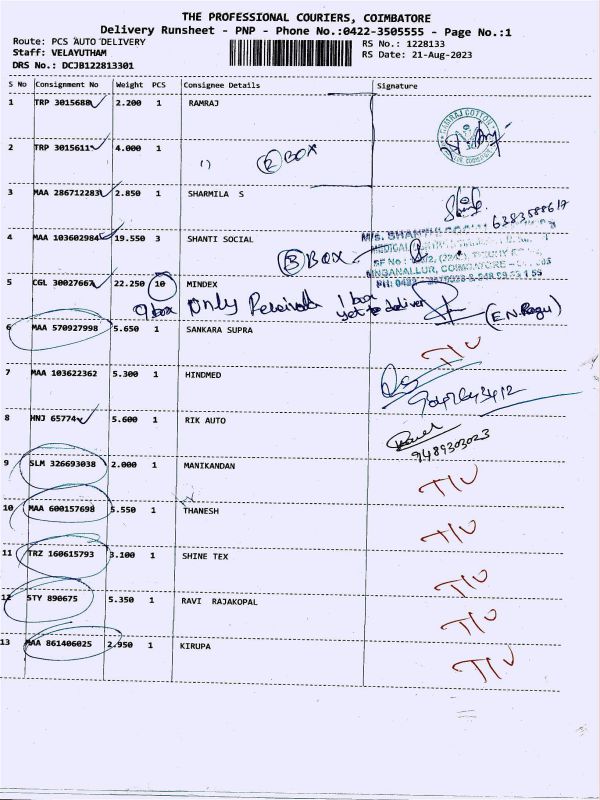 THE PROFESSIONAL COURIERS, COIMBATORE
Delivery Runsheet - PNP - Phone No.:0422-3505555 - Page No.:1
Route: PCS AUTO DELIVERY
RS No.: 1228133
Staff: VELAYUTHAM
RS Date: 21-Aug-2023
DRS No.: DCJB122813301
S No Consignment No Weight PCS Consignee Details Signature
1 TRP 3015688 2.200 1 RAMRAJ
2 TRP 3015611 4.000 1
2 BOX
3 MAA 286712283 2.850 1 SHARMILA S
6383588617
4 MAA 103602984 19.550 3 SHANTI SOCIAL
3 BOX
5 CGL 30027667 22.250 10 MINDEX
9 box Only Received 1 box yet to deliver (E.N.Ragu)
6 MAA 570927998 5.650 1 SANKARA SUPRA
TIU
7 MAA 103622362 5.300 1 HINDMED
8 HNJ 65774 5.600 1 RIK AUTO
9489303023
9 SLM 326693038 2.000 1 MANIKANDAN
TIU
10 MAA 600157698 5.550 1 THANESH
TIU
11 TRZ 160615793 3.100 1 SHINE TEX
TIU
12 STY 890675 5.350 1 RAVI RAJAKOPAL
TIU
13 MAA 861406025 2.950 1 KIRUPA
TIU